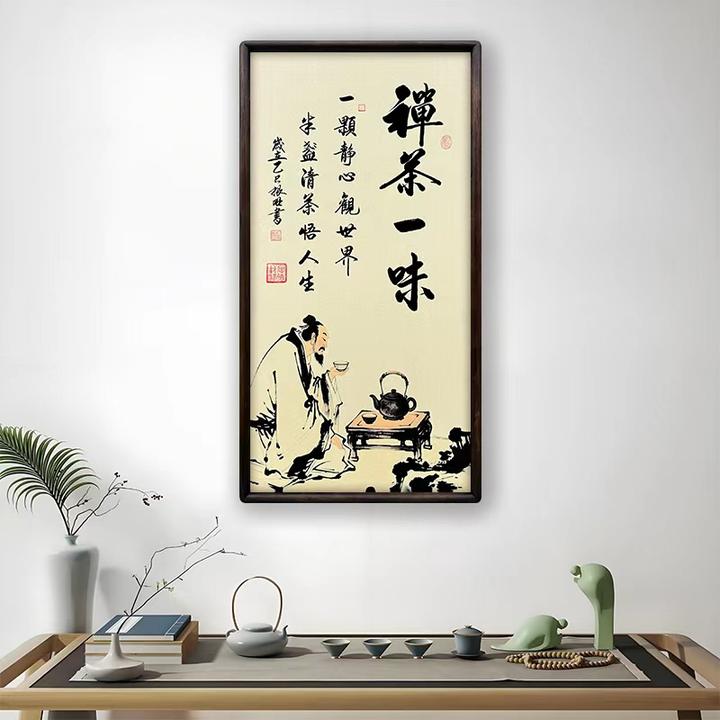 禪茶一味
一顆靜心觀世界
半盞清茶悟人生
歲在乙巳振壯書